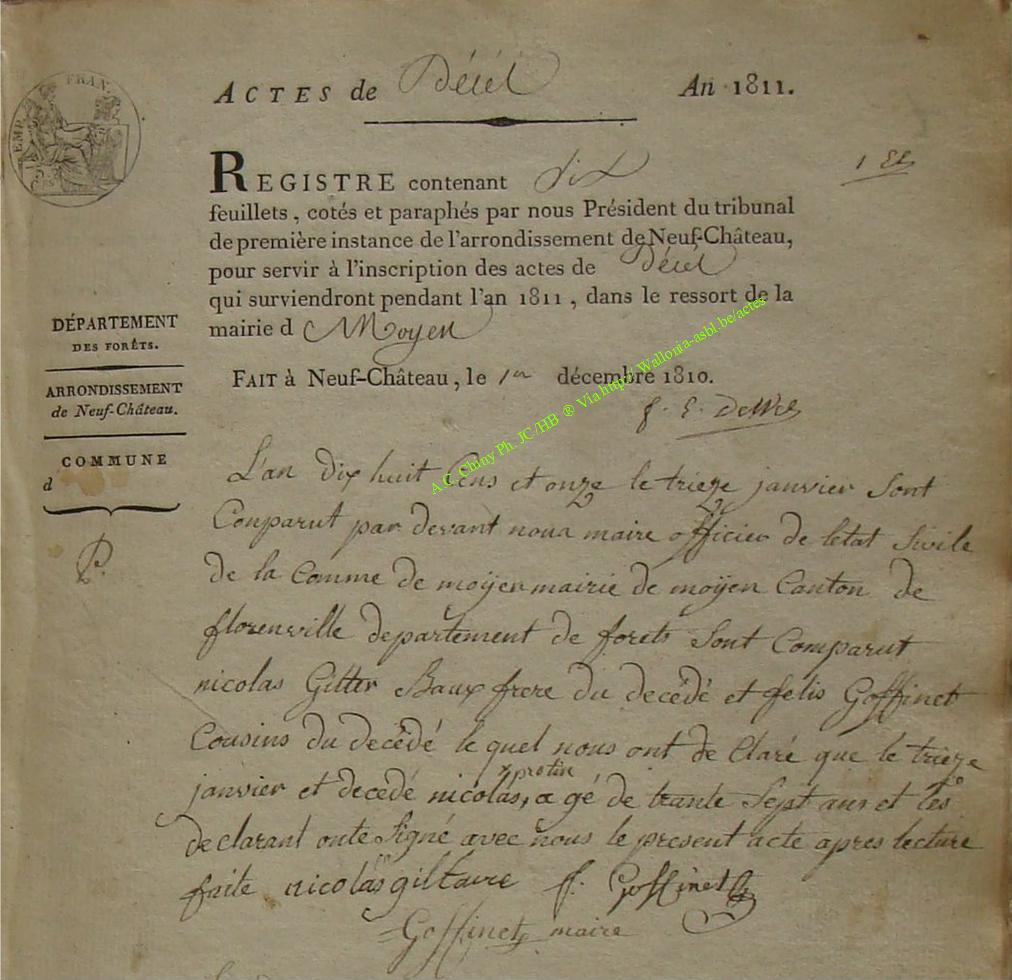 EMP. FRAN.
ACTES de Décel An 1811.
REGISTRE contenant dix
feuillets, cotés et paraphés par nous Président du tribunal
de première instance de l'arrondissement de Neuf-Château,
pour servir à l'inscription des actes de Décel
qui surviendront pendant l'an 1811, dans le ressort de la
mairie d Moyen
FAIT à Neuf-Château, le 1er décembre 1810.
DÉPARTEMENT
DES FORÊTS.
ARRONDISSEMENT
de Neuf-Château.
COMMUNE
d
A.C. Chiny Ph. JC/HB ® Via http://Wallonia-asbl.be/actes
L'an dix huit Cens et onze le trieze janvier Sont
Conparut par devant nous maire officier de letat Sivile
de la Comme de moyen mairie de moyen Canton de
florenville departement de forets Sont Comparut
nicolas Gilter Baux frere du decédé et felis Goffinet
Cousins du decédé le quel nous ont de Claré que le trieze
janvier et decédé nicolas, protin a gé de trante Sept ans et les
declarant onte Signé avec nous le present acte apres lecture
faite nicolas giltaire f. Goffinet
Goffinet maire